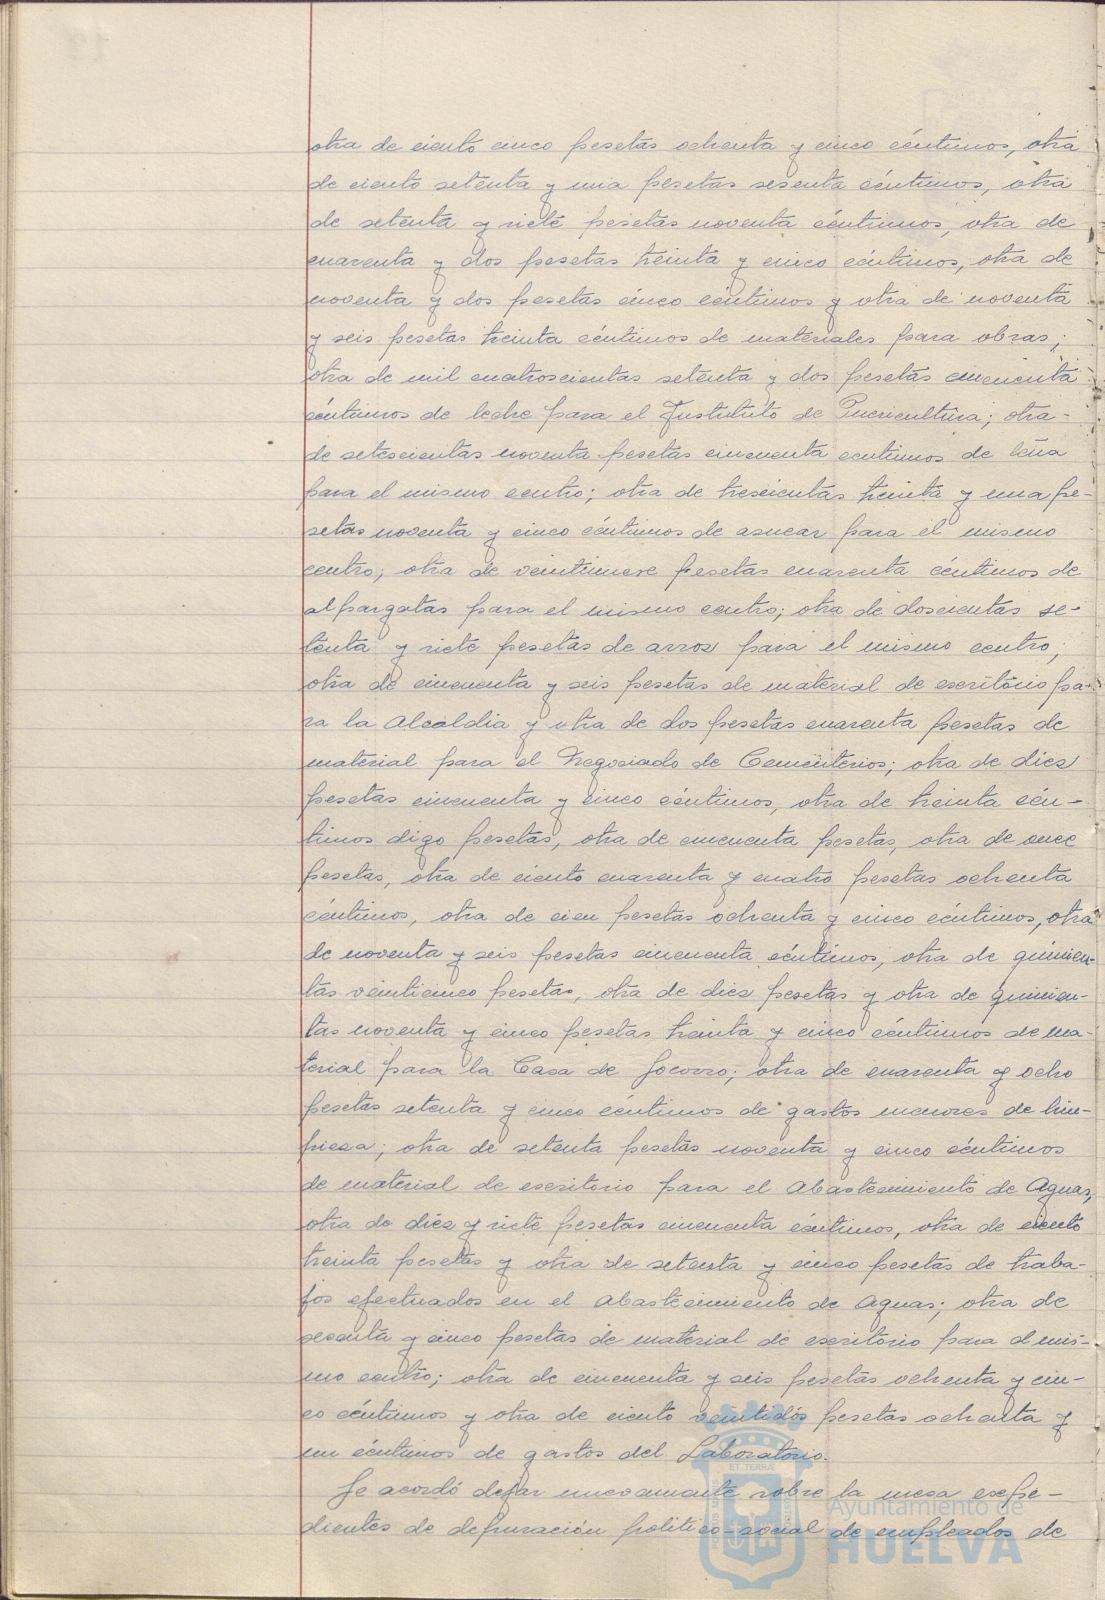 otra de ciento cinco pesetas ochenta y cinco céntimos, otra
de ciento setenta y una pesetas sesenta céntimos, otra
de setenta y siete pesetas noventa céntimos, otra de
cuarenta y dos pesetas treinta y cinco céntimos, otra de
noventa y dos pesetas cinco céntimos y otra de noventa
y seis pesetas treinta céntimos de materiales para obras;
otra de mil cuatroscientas setenta y dos pesetas cincuenta
céntimos de leche para el Instituto de Puericultura; otra
de setescientas noventa pesetas cincuenta centimos de leña
para el mismo centro; otra de trescientas treinta y una pe-
setas noventa y cinco céntimos de asucar para el mismo
centro; otra de veintinueve pesetas cuarenta céntimos de
alpargatas para el mismo centro; otra de doscientas se-
tenta y siete pesetas de arroz para el mismo centro;
otra de cincuenta y seis pesetas de material de escritorio pa-
ra la Alcaldia y otra de dos pesetas cuarenta pesetas de
material para el Negociado de Cementerios; otra de diez
pesetas cincuenta y cinco céntimos, otra de treinta cén-
timos digo pesetas, otra de cincuenta pesetas, otra de once
pesetas, otra de ciento cuarenta y cuatro pesetas ochenta
céntimos, otra de cien pesetas ochenta y cinco céntimos, otra
de noventa y seis pesetas cincuenta céntimos, otra de quinien-
tas veinticinco pesetas, otra de diez pesetas y otra de quinien-
tas noventa y cinco pesetas treinta y cinco céntimos de ma-
terial para la Casa de Socorro; otra de cuarenta y ocho
pesetas setenta y cinco céntimos de gastos menores de lim-
pieza; otra de setenta pesetas noventa y cinco céntimos
de material de escritorio para el Abastecimiento de Aguas,
otra de diez y siete pesetas cincuenta céntimos, otra de ciento
treinta pesetas y otra de setenta y cinco pesetas de traba-
jos efectuados en el Abastecimiento de Aguas; otra de
sesenta y cinco pesetas de material de escritorio para el mis-
mo centro; otra de cincuenta y seis pesetas ochenta y cin-
co céntimos y otra de ciento veintidós pesetas ochenta y
un céntimos de gastos del Laboratorio.
Se acordó dejar nuevamente sobre la mesa expe-
dientes de depuración politico-social de empleados de
Ayuntamiento de
HUELVA